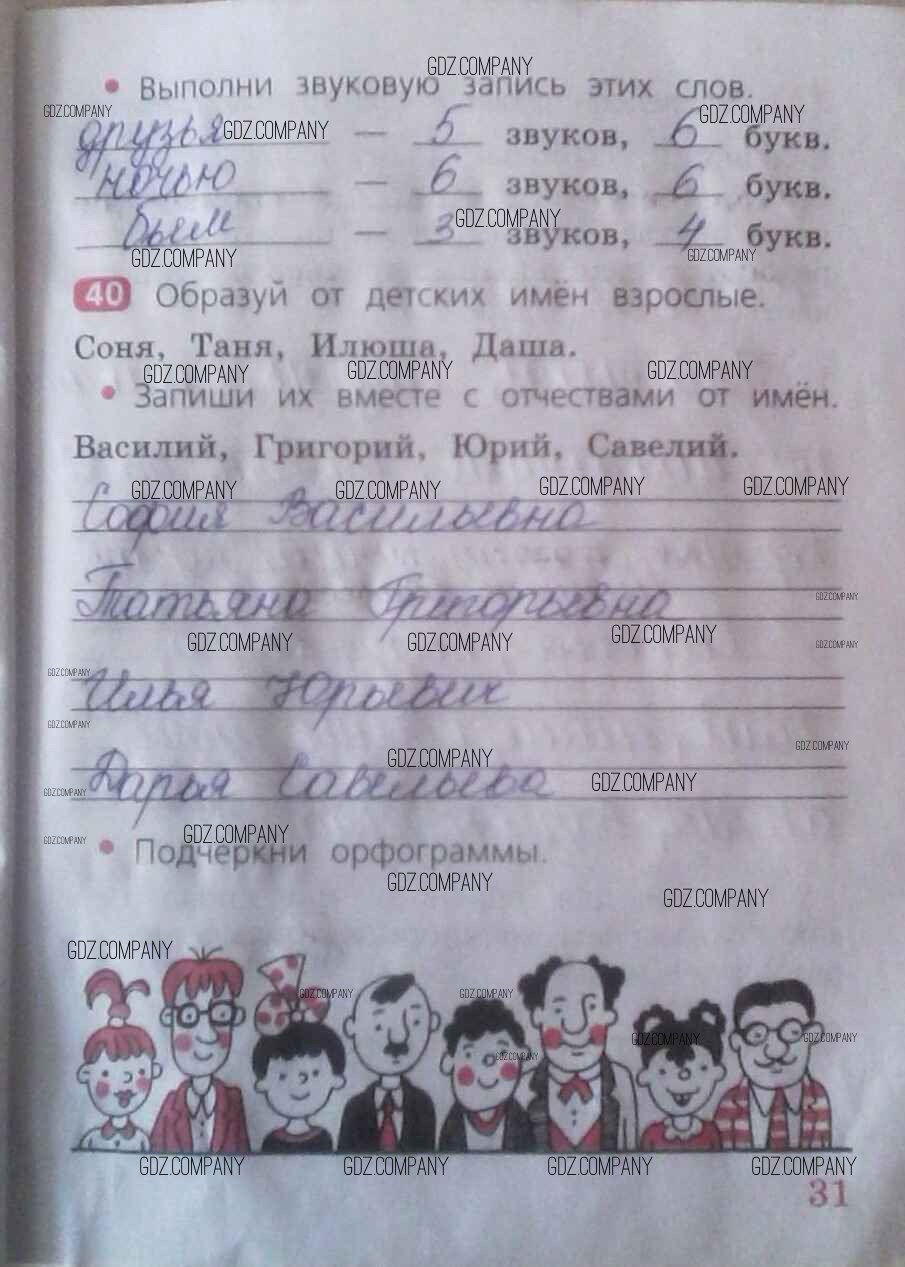 GDZ.COMPANY
• Выполни звуковую запись этих слов.
GDZ.COMPANY GDZ.COMPANY
друзья GDZ.COMPANY — 5 звуков, 6 букв.
ночью — 6 звуков, 6 букв.
GDZ.COMPANY
бьем — 3 звуков, 4 букв.
GDZ.COMPANY GDZ.COMPANY
40 Образуй от детских имён взрослые.
Соня, Таня, Илюша, Даша.
GDZ.COMPANY GDZ.COMPANY GDZ.COMPANY
• Запиши их вместе с отчествами от имён.
Василий, Григорий, Юрий, Савелий.
GDZ.COMPANY GDZ.COMPANY GDZ.COMPANY GDZ.COMPANY
София Васильевна
Татьяна GDZ.COMPANY
GDZ.COMPANY GDZ.COMPANY GDZ.COMPANY GDZ.COMPANY
GDZ.COMPANY
Илья Юрьевич
GDZ.COMPANY
GDZ.COMPANY GDZ.COMPANY
Дарья GDZ.COMPANY
GDZ.COMPANY
GDZ.COMPANY GDZ.COMPANY
• Подчеркни орфограммы.
GDZ.COMPANY GDZ.COMPANY
GDZ.COMPANY
GDZ.COMPANY GDZ.COMPANY
GDZ.COMPANY GDZ.COMPANY GDZ.COMPANY
GDZ.COMPANY GDZ.COMPANY GDZ.COMPANY GDZ.COMPANY
31